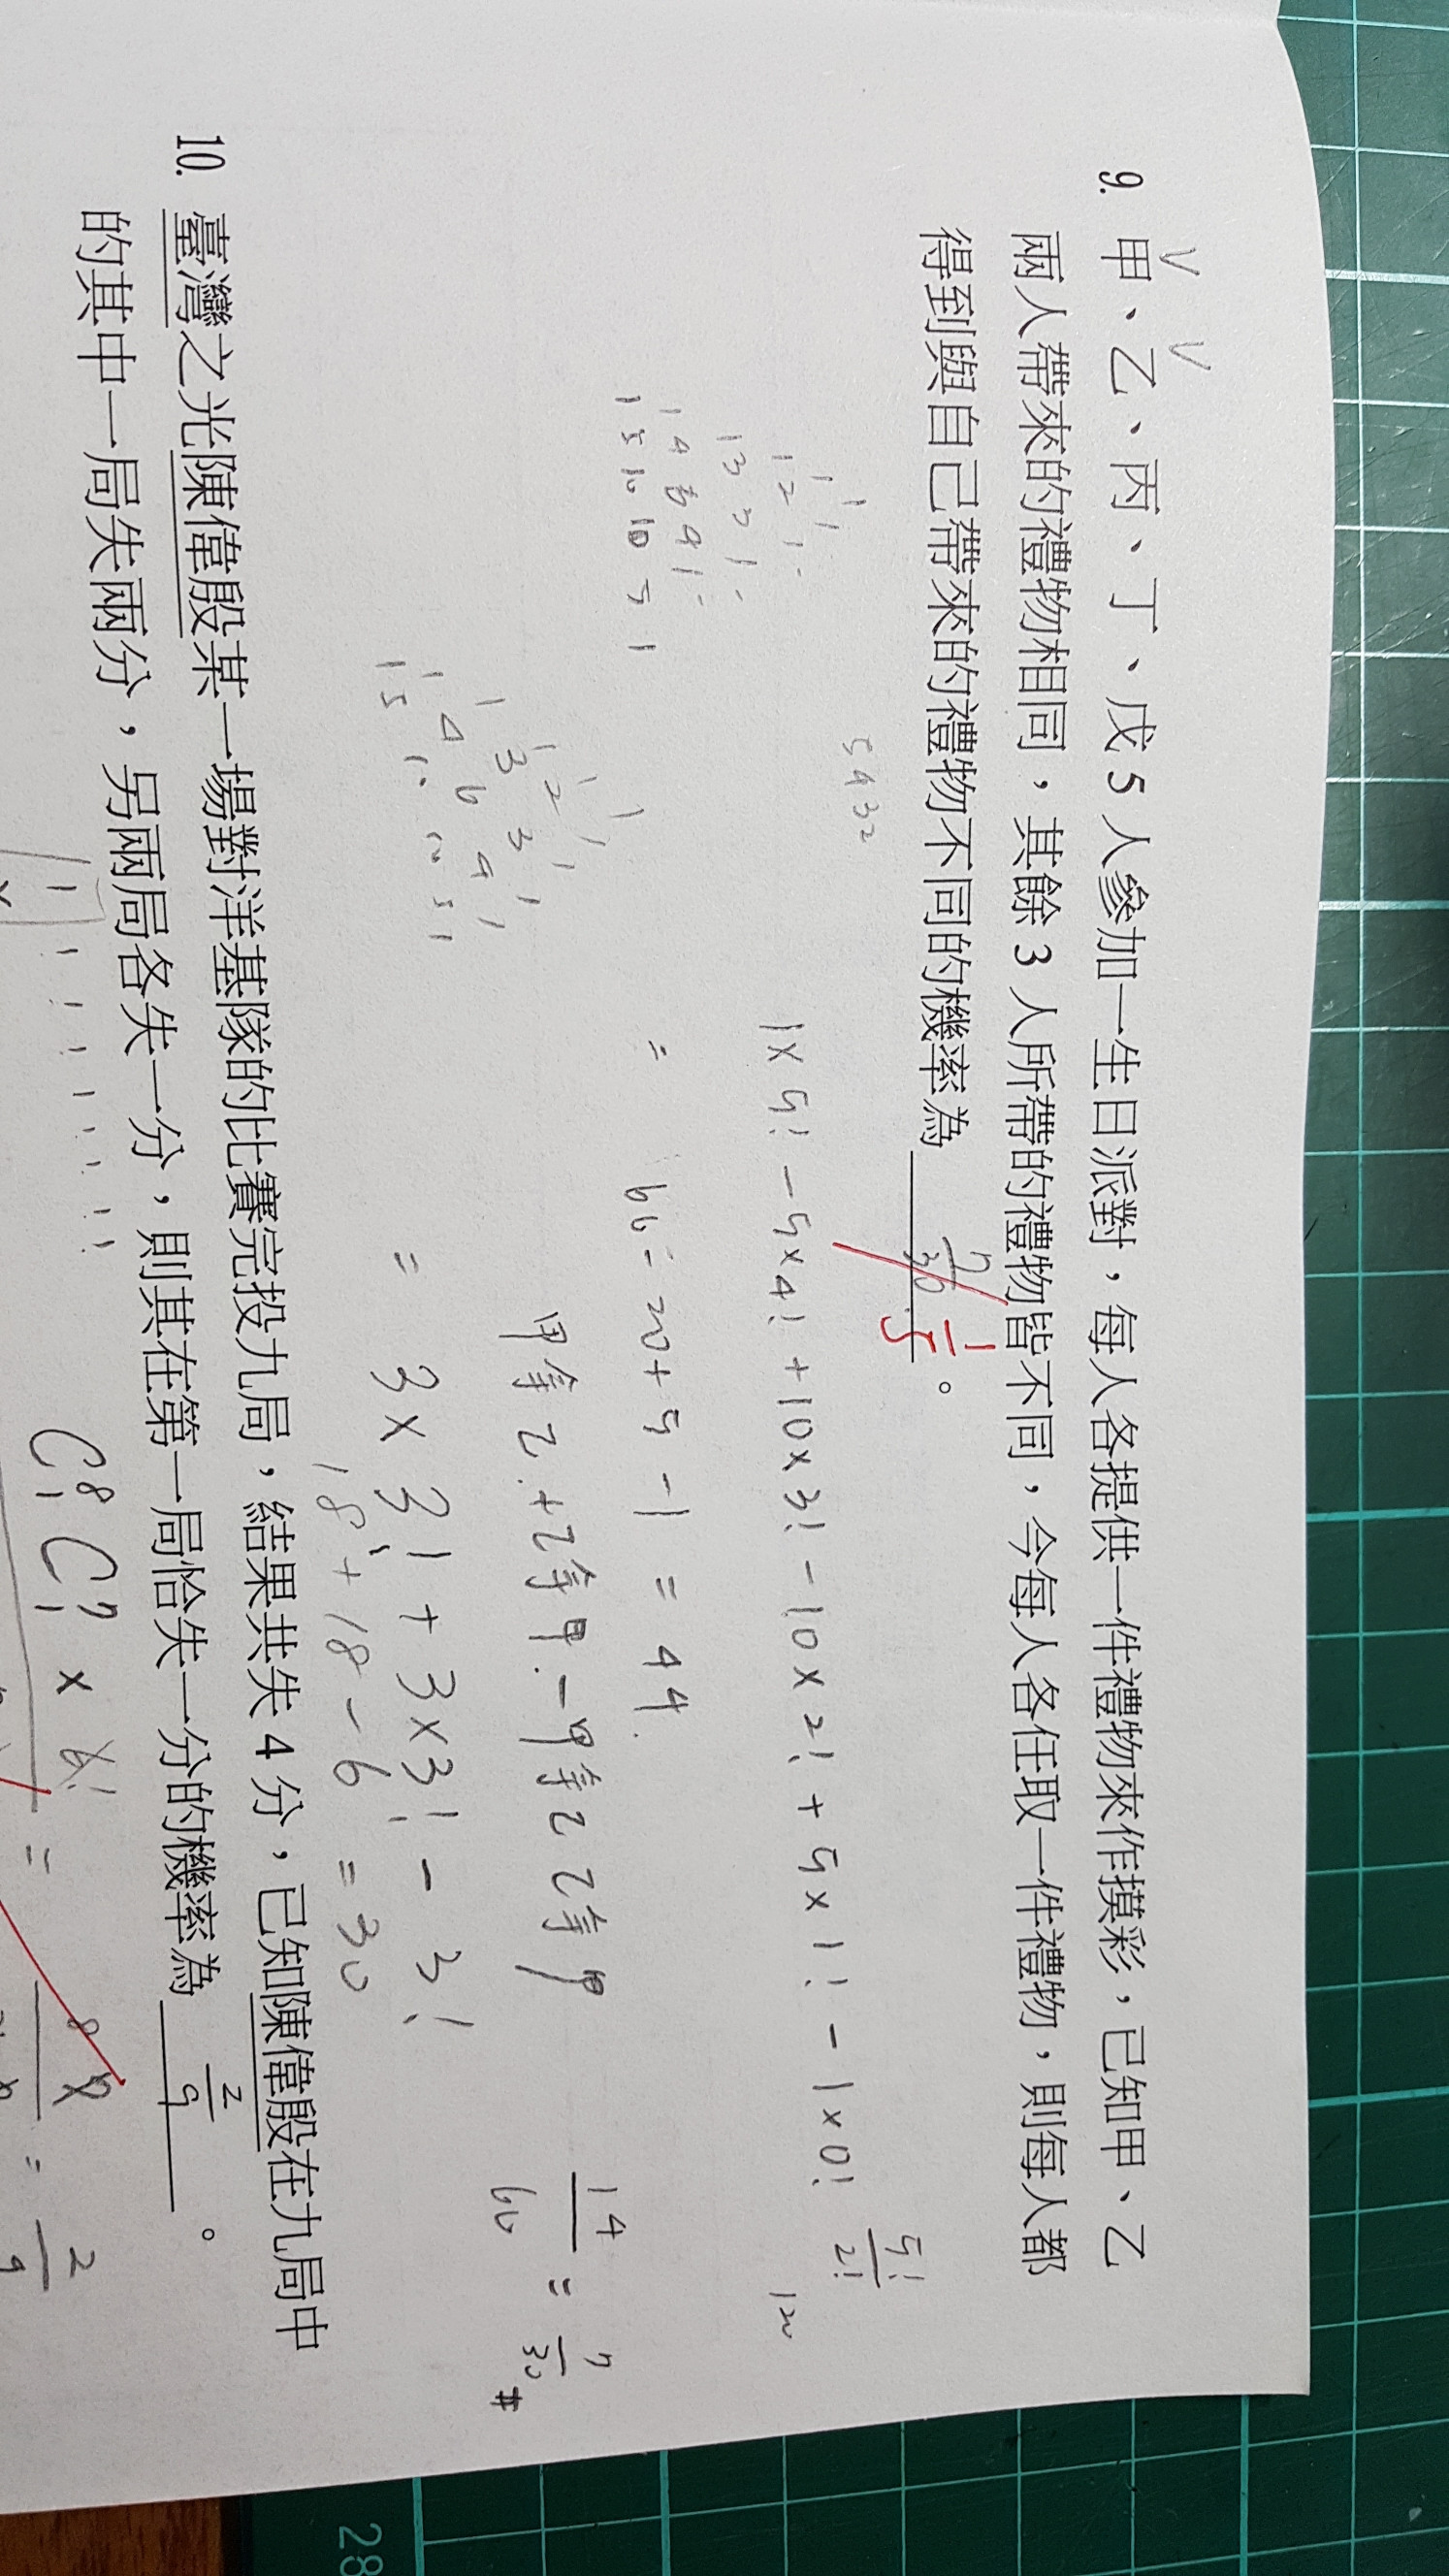 9. 甲、乙、丙、丁、戊 5 人參加一生日派對，每人各提供一件禮物來作摸彩，已知甲、乙
兩人帶來的禮物相同，其餘 3 人所帶的禮物皆不同，今每人各任取一件禮物，則每人都
得到與自己帶來的禮物不同的機率為 7/30 1/5 。
5 4 3 2
5!/2!
120
1×5! - 5×4! + 10×3! - 10×2! + 5×1! - 1×0!
= 60 - 20 + 5 - 1 = 44
甲拿乙 + 乙拿甲 - 甲拿乙乙拿甲
= 3×3! + 3×3! - 3!
18 + 18 - 6 = 30
14/60 = 7/30 #
1
1 1
1 2 1
1 3 3 1
1 4 6 4 1
1 5 10 10 5 1
1
1 1
1 2 1
1 3 3 1
1 4 6 4 1
1 5 10 10 5 1
10. 臺灣之光陳偉殷某一場對洋基隊的比賽完投九局，結果共失 4 分，已知陳偉殷在九局中
的其中一局失兩分，另兩局各失一分，則其在第一局恰失一分的機率為 2/9 。